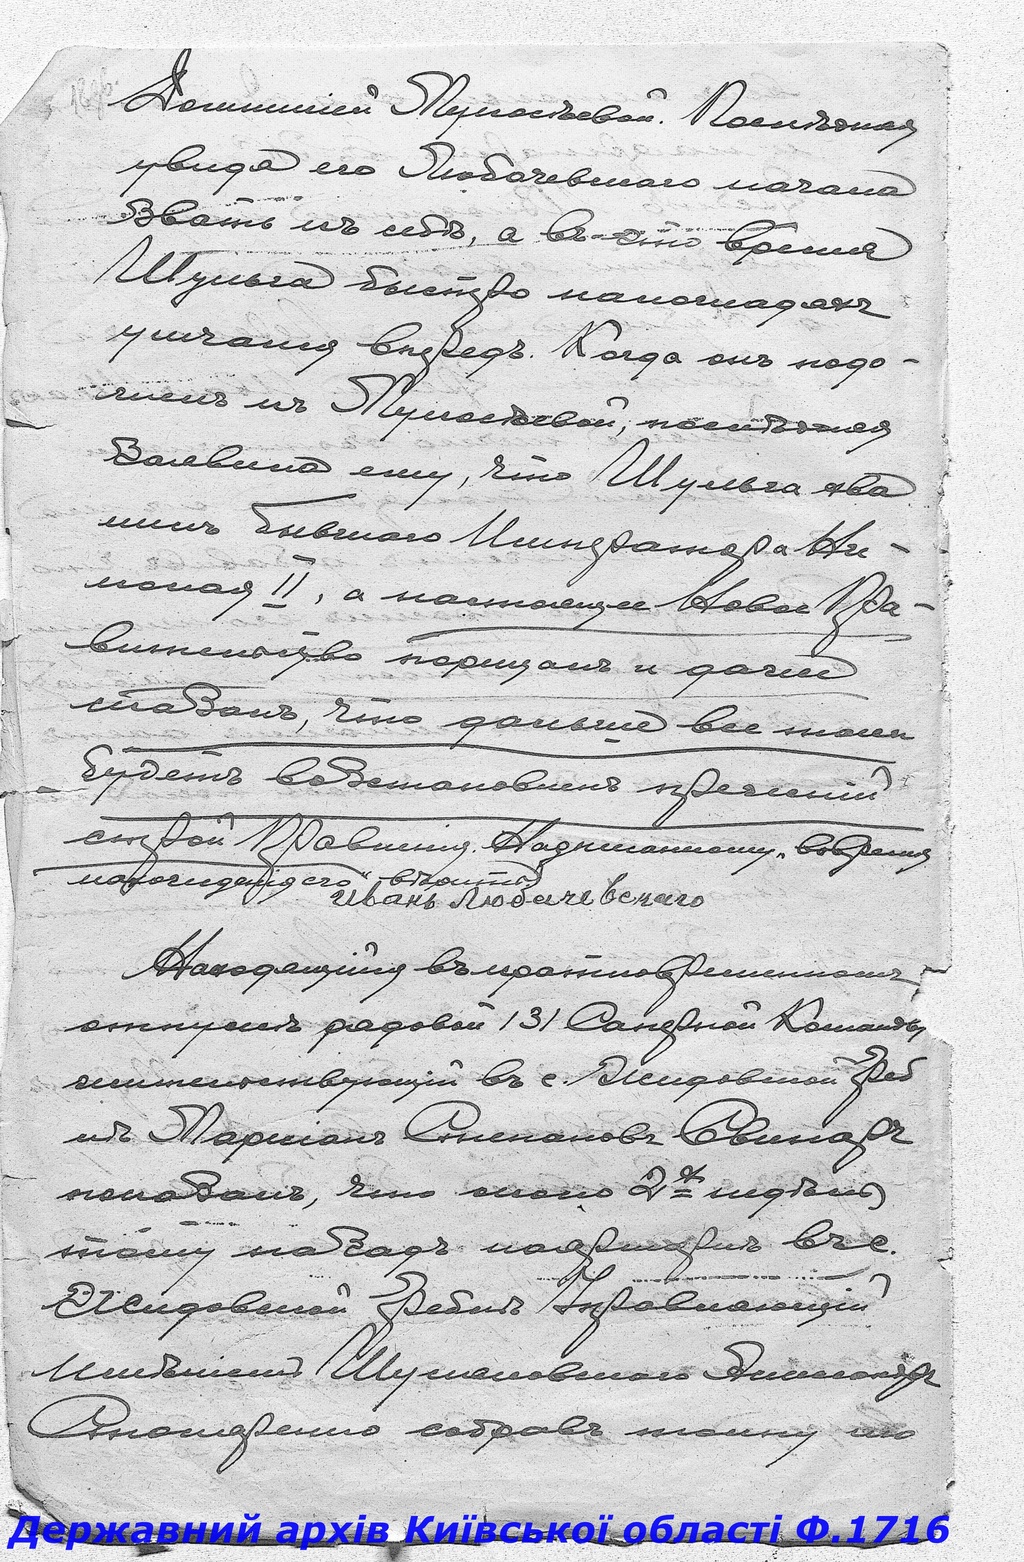 Домникiей Мулостьевой. Послѣдняя
увидя его Любачевскаго начала
звать къ себѣ, а въ это время
Шульга быстро на лошадях
умчался впередъ. Когда онъ подо-
шелъ къ Мулостьевой, послѣдняя
заявила ему, что Шульга хва
лилъ бывшаго Императора Ни-
колая II, а настоящее Новое Пра-
вительство порицалъ и далее
сказалъ, что дальше все таки
будетъ возстановленъ прежнiй
строй Правленiя. Надписанному „во время
Иванъ Любачевскаго
Находящiйся въ кратковременномъ
отпускѣ рядовой 131 Саперной Команды
жительствующiй въ с. Жидовской Греб
лѣ Марцiанъ Степановъ Свинарь
показалъ, что около 2х недѣль
тому назадъ на ярмаркѣ въ с.
Жидовской Греблѣ Управляющiй
имѣнiемъ Шумановскаго Александръ
собравъ толпу
Державний архів Київської області Ф.1716